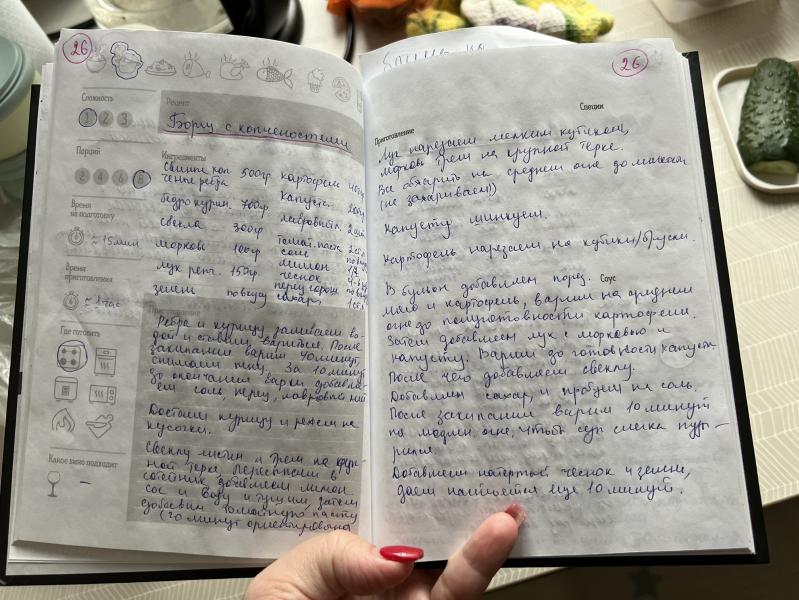 26
Сложность
1 2 3
Рецепт
Борщ с копченостями
Порций
2 4 6 8
Ингредиенты
Свиные коп. 500гр картофель
чение ребра капуста
бедро курин. 700гр. лавровый л.
свекла 300гр томат. паста
морковь 100гр соль
лук реп. 150гр. лимон
чеснок
зелень по вкусу перец горош.
сахар
Время
на подготовку
≈ 15 мин
Время
приготовления
≈ 1 час
Где готовить
Какое вино подходит
–
Приготовление
Ребра и курицу заливаем во-
дой и ставим вариться. После
закипания варим 40 минут,
снимаем пену. За 10 минут
до окончания варки добавля-
ем соль, перец, лавровый лист
Достаем курицу и режем на
кусочки.
Свеклу чистим и трем на круп-
ной терке, перекладываем в
сотейник добавляем лимон.
сок и воду и тушим, затем
добавим томатную пасту
(20 минут ориентировочно
26
Специи
Приготовление
Лук нарезаем мелким кубиком,
морковь трем на крупной терке.
Все обжарить на среднем огне до мягкости
(не зажариваем!)
Капусту шинкуем.
Картофель нарезаем на кубики/бруски.
В бульон добавляем порез.
Соус
мясо и картофель, варим на среднем
огне до полуготовности картофеля.
Затем добавляем лук с морковью и
капусту. Варим до готовности капусты
После чего добавляем свеклу.
Добавляем сахар, и пробуем на соль.
После закипания варим 10 минут
на медлен. огне, чтобы суп слегка пузы-
рился.
Добавляем натертый чеснок и зелень,
даем настоятся еще 10 минут.